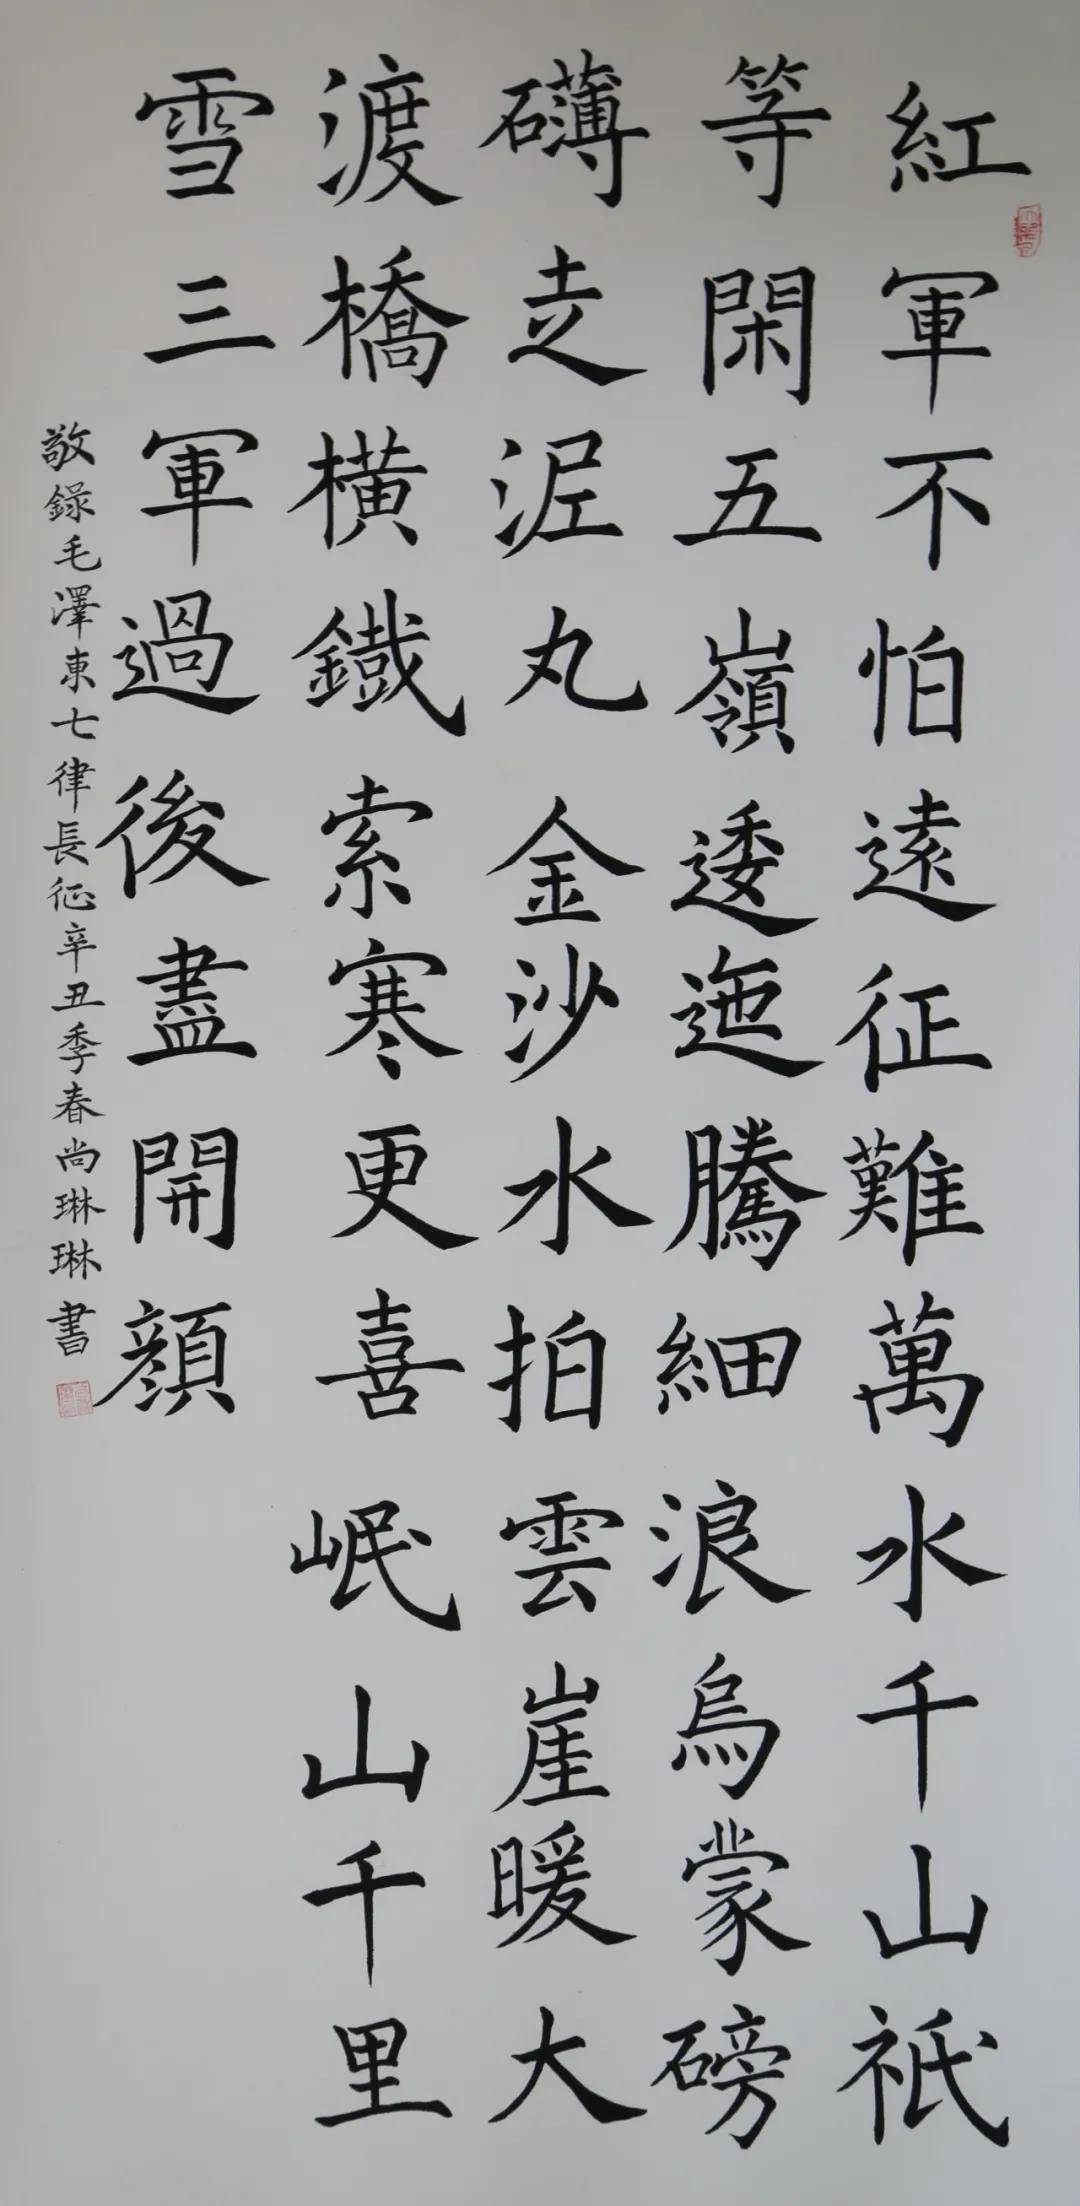 紅軍不怕遠征難萬水千山祇
等閑五嶺逶迤騰細浪烏蒙磅
礴走泥丸金沙水拍雲崖暖大
渡橋橫鐵索寒更喜岷山千里
雪三軍過後盡開顏
敬錄毛澤東七律長征辛丑季春尚琳琳書